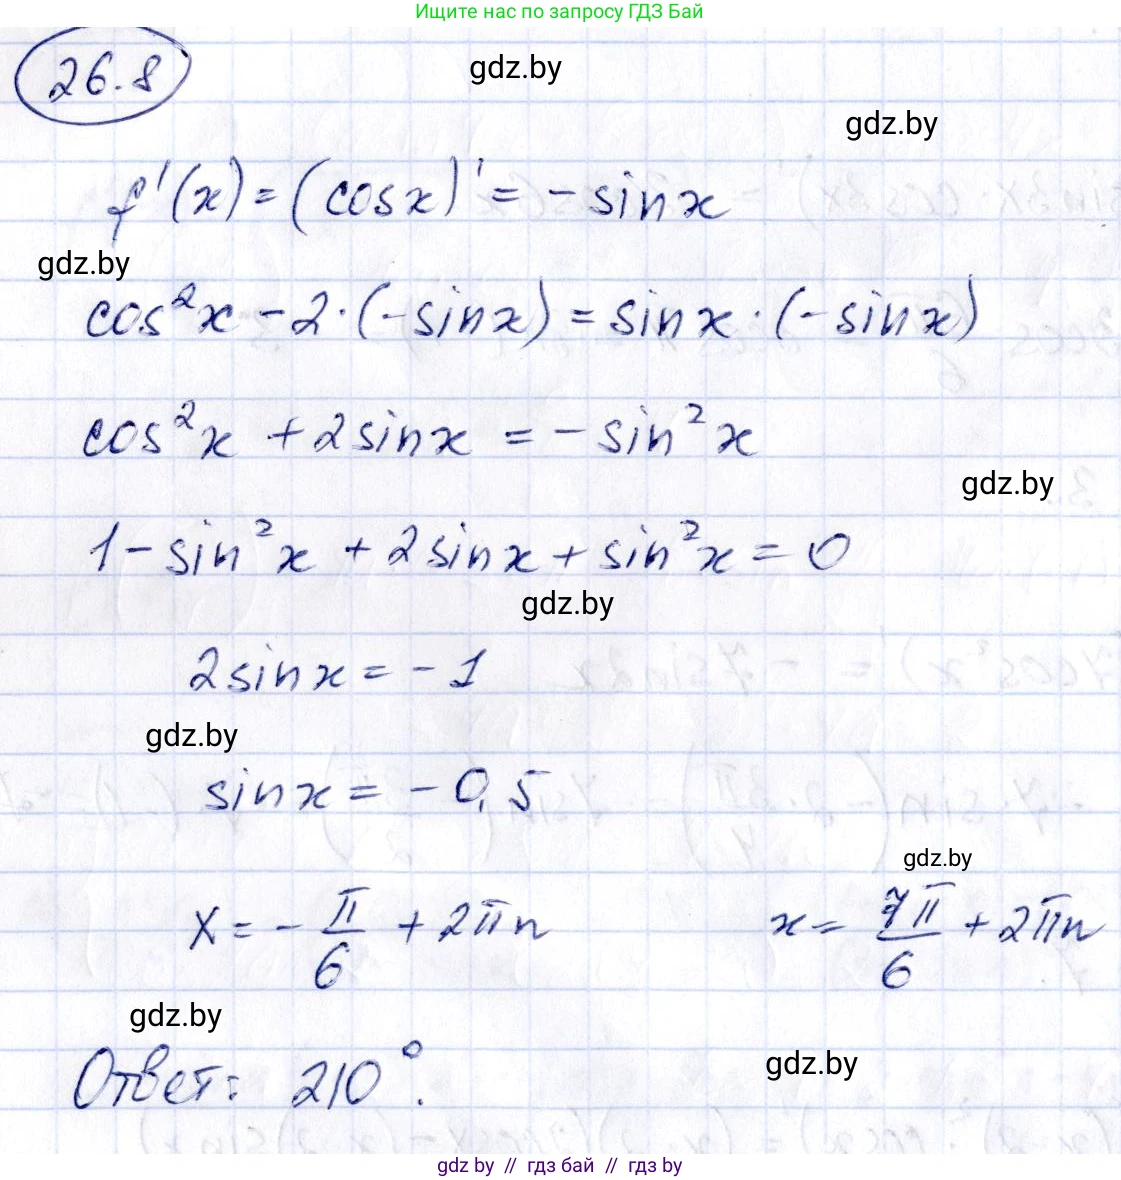 Ищите нас по запросу ГДЗ Бай
26.8
gdz.by
gdz.by
f'(x) = (cosx)' = - sinx
gdz.by
cos²x - 2·(-sinx) = sinx·(-sinx)
cos²x + 2sinx = - sin²x
gdz.by
1 - sin²x + 2sinx + sin²x = 0
gdz.by
2sinx = - 1
gdz.by
sinx = - 0,5
gdz.by
x = - π/6 + 2πn x = 7π/6 + 2πn
gdz.by
gdz.by
Ответ: 210°.
gdz.by // гдз бай // гдз by